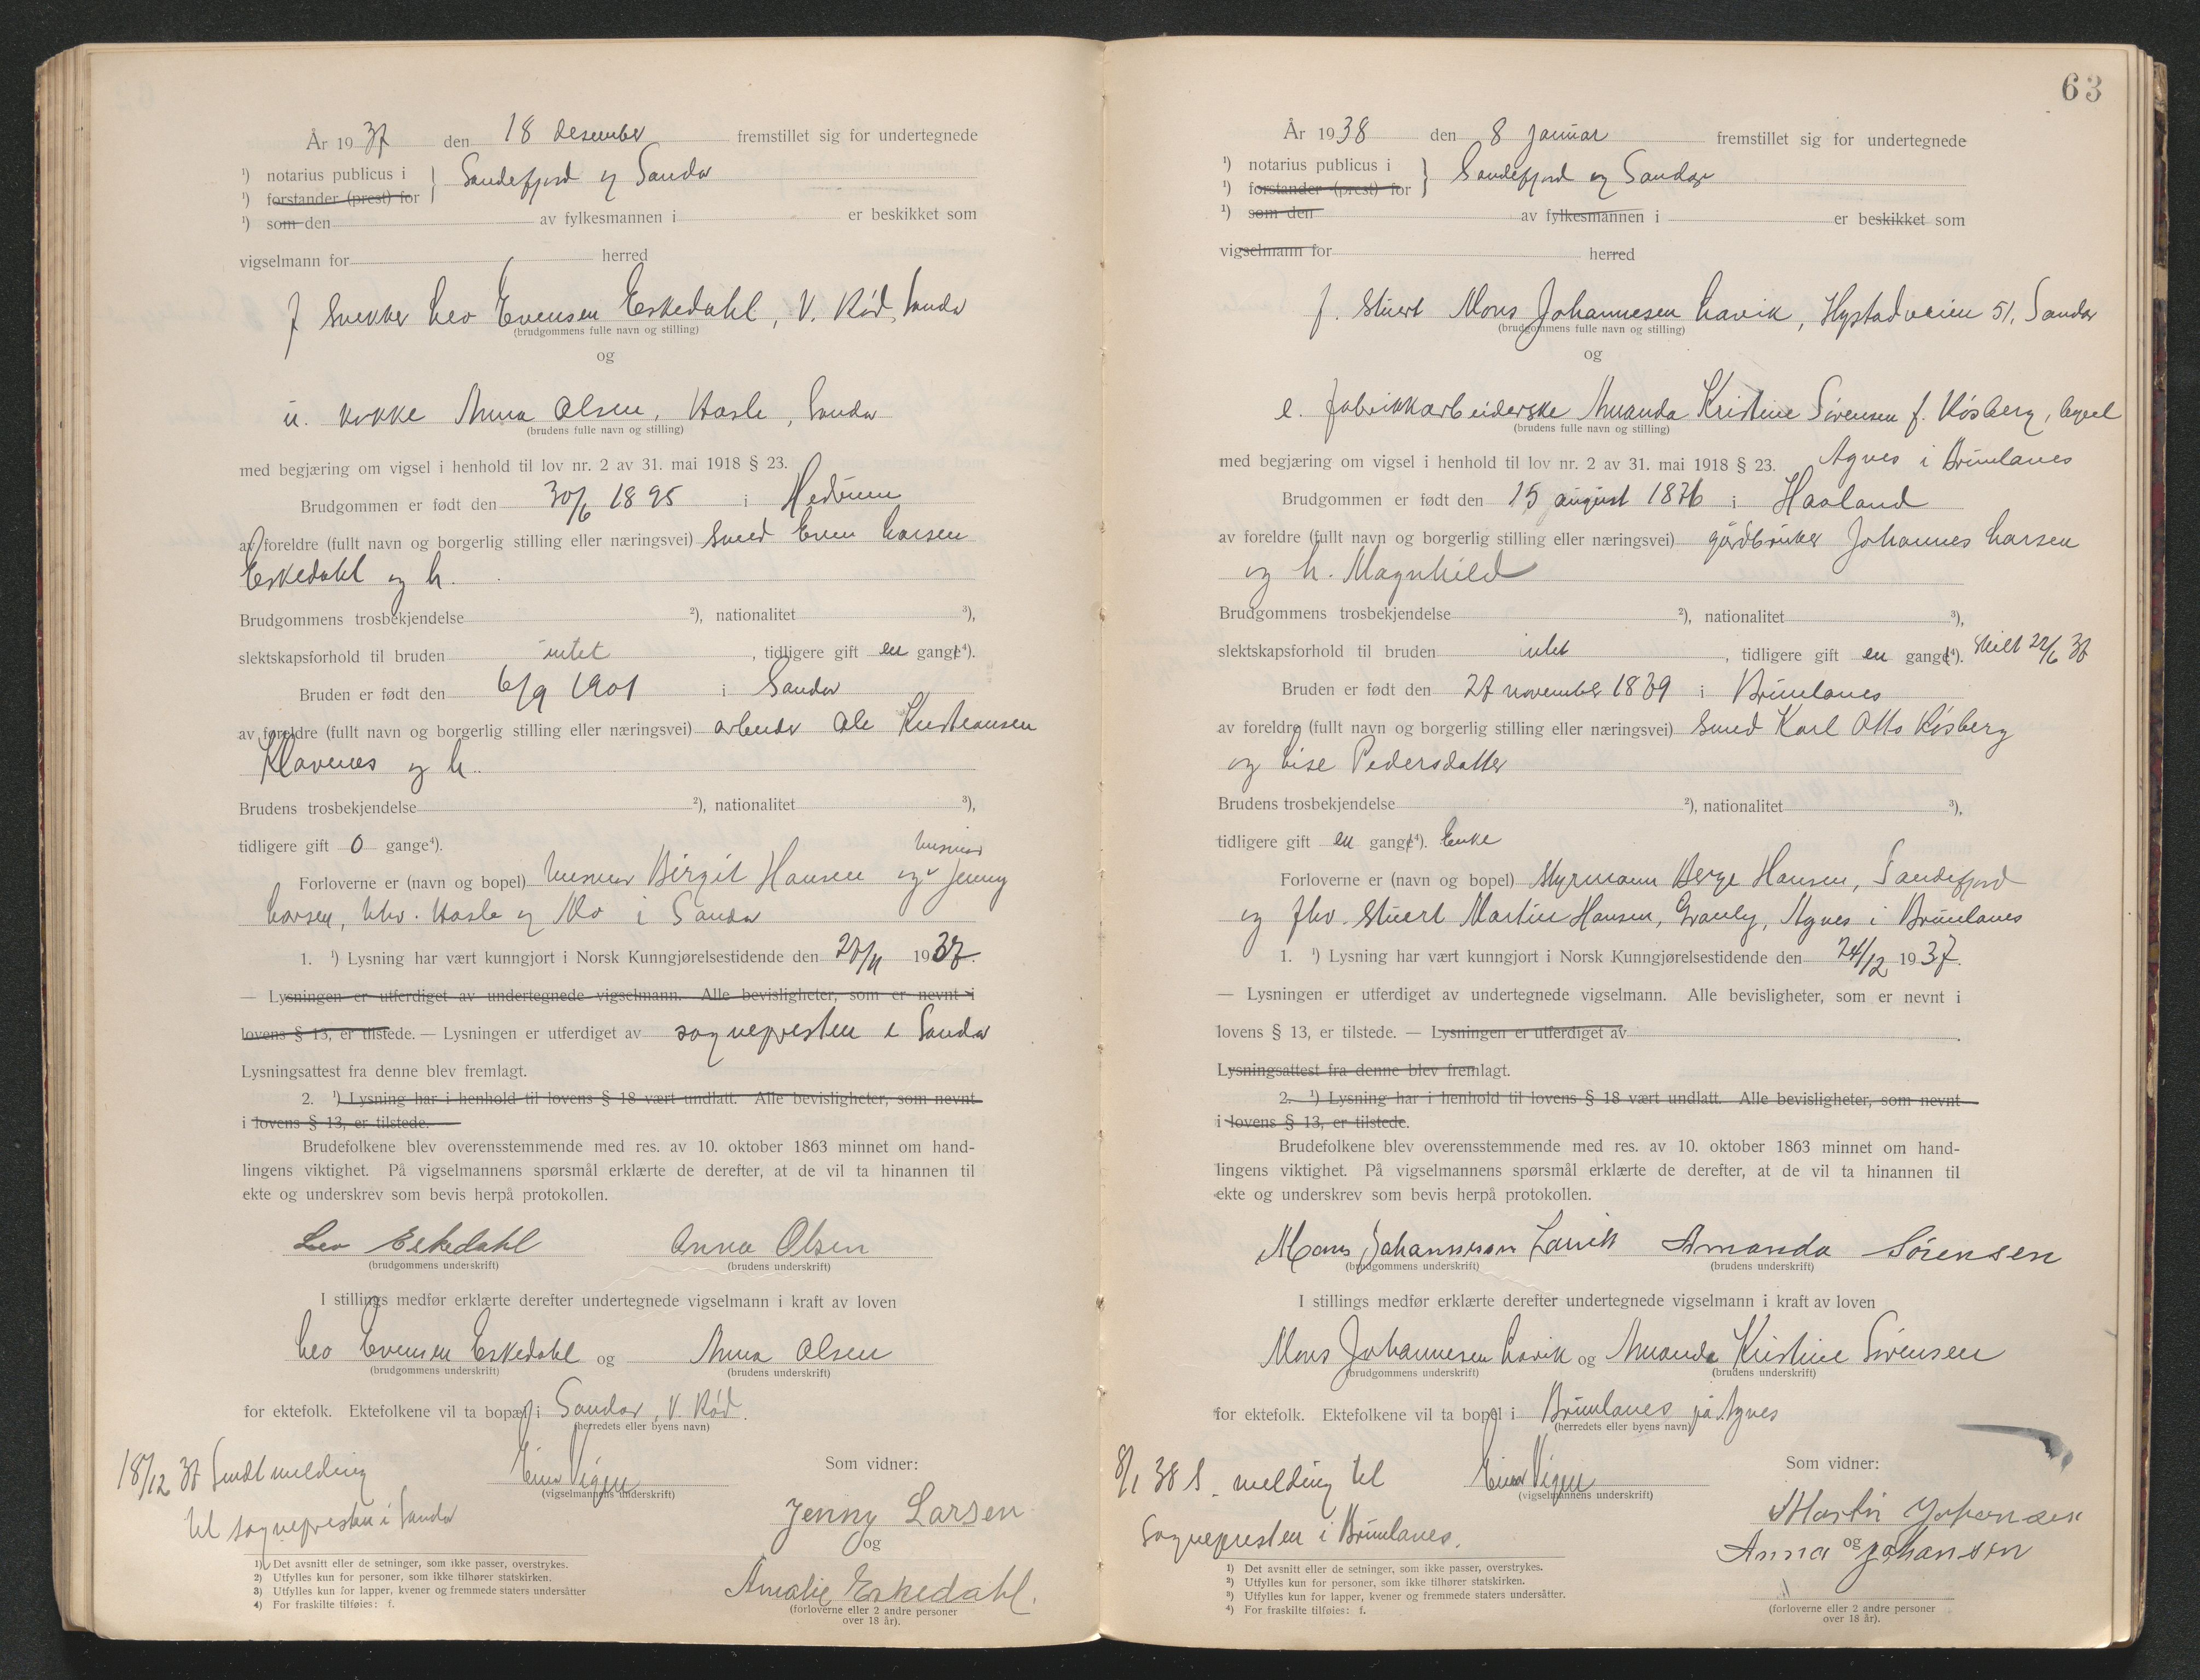 År 1937 den 18 desember fremstillet sig for undertegnede
¹) notarius publicus i } Sandefjord og Sandar
¹) forstander (prest) for
¹) som den av fylkesmannen i er beskikket som
vigselmann for herred
f snekker Leo Evensen Eskedahl, V. Rød, Sandar
(brudgommens fulle navn og stilling)
og
u. kokke Anna Olsen, Hasle, Sandar
(brudens fulle navn og stilling)
med begjæring om vigsel i henhold til lov nr. 2 av 31. mai 1918 § 23.
Brudgommen er født den 30/6 1895 i Hedrum
av foreldre (fullt navn og borgerlig stilling eller næringsvei) smed Even Larsen
Eskedahl og h.
Brudgommens trosbekjendelse ²), nationalitet ³),
slektskapsforhold til bruden intet, tidligere gift en gange⁴).
Bruden er født den 6/9 1901 i Sandar
av foreldre (fullt navn og borgerlig stilling eller næringsvei) arbeider Ole Kristiansen
Klavenes og h.
Brudens trosbekjendelse ²), nationalitet ³),
tidligere gift 0 gange⁴).
husmor
Forloverne er (navn og bopel) husmor Birgit Hansen og Jenny
Larsen, hhv. Hasle og Mo i Sandar
1. ¹) Lysning har vært kunngjort i Norsk Kunngjørelsestidende den 27/11 1937.
— Lysningen er utferdiget av undertegnede vigselmann. Alle bevisligheter, som er nevnt i
lovens § 13, er tilstede. — Lysningen er utferdiget av sognepresten i Sandar
Lysningsattest fra denne blev fremlagt.
2. ¹) Lysning har i henhold til lovens § 18 vært undlatt. Alle bevisligheter, som nevnt
i lovens § 13, er tilstede.
Brudefolkene blev overensstemmende med res. av 10. oktober 1863 minnet om hand-
lingens viktighet. På vigselmannens spørsmål erklærte de derefter, at de vil ta hinannen til
ekte og underskrev som bevis herpå protokollen.
Leo Eskedahl Anna Olsen
(brudgommens underskrift) (brudens underskrift)
I stillings medfør erklærte derefter undertegnede vigselmann i kraft av loven
Leo Evensen Eskedahl og Anna Olsen
(brudgommens underskrift) (brudens underskrift)
for ektefolk. Ektefolkene vil ta bopæl i Sandar, V. Rød.
(herredets eller byens navn)
18/12 37 Sendt melding
til sognepresten i Sandar
Einar Vigen
(vigselmannens underskrift)
Som vidner:
Jenny Larsen
og
Amalie Eskedahl.
(forloverne eller 2 andre personer
over 18 år).
1) Det avsnitt eller de setninger, som ikke passer, overstrykes.
2) Utfylles kun for personer, som ikke tilhører statskirken.
3) Utfylles kun for lapper, kvener og fremmede staters undersåtter
4) For fraskilte tilføies: f.
63
År 1938 den 8 januar fremstillet sig for undertegnede
¹) notarius publicus i } Sandefjord og Sandar
¹) forstander (prest) for
¹) som den av fylkesmannen i er beskikket som
vigselmann for herred
f. stuert Mons Johannesen Lavik, Hystadveien 51, Sandar
(brudgommens fulle navn og stilling)
og
e. fabrikkarbeiderske Amanda Kristine Sørensen f. Røsberg, bopel
(brudens fulle navn og stilling)
med begjæring om vigsel i henhold til lov nr. 2 av 31. mai 1918 § 23. Agnes i Brunlanes
Brudgommen er født den 15 august 1876 i Haaland
av foreldre (fullt navn og borgerlig stilling eller næringsvei) gårdbruker Johannes Larsen
og h. Magnhild
Brudgommens trosbekjendelse ²), nationalitet ³),
slektskapsforhold til bruden intet, tidligere gift en gange⁴). skilt 22/6 37
Bruden er født den 27 november 1879 i Brunlanes
av foreldre (fullt navn og borgerlig stilling eller næringsvei) smed Karl Otto Røsberg
og Lise Pedersdatter
Brudens trosbekjendelse ²), nationalitet ³),
tidligere gift en gange⁴). Enke
Forloverne er (navn og bopel) styrmann Berge Hansen, Sandefjord
og fhv. stuert Martin Hansen, Granly, Agnes i Brunlanes
1. ¹) Lysning har vært kunngjort i Norsk Kunngjørelsestidende den 24/12 1937.
— Lysningen er utferdiget av undertegnede vigselmann. Alle bevisligheter, som er nevnt i
lovens § 13, er tilstede. — Lysningen er utferdiget av .
Lysningsattest fra denne blev fremlagt.
2. ¹) Lysning har i henhold til lovens § 18 vært undlatt. Alle bevisligheter, som nevnt
i lovens § 13, er tilstede.
Brudefolkene blev overensstemmende med res. av 10. oktober 1863 minnet om hand-
lingens viktighet. På vigselmannens spørsmål erklærte de derefter, at de vil ta hinannen til
ekte og underskrev som bevis herpå protokollen.
Mons Johannesen Lavik Amanda Sørensen
(brudgommens underskrift) (brudens underskrift)
I stillings medfør erklærte derefter undertegnede vigselmann i kraft av loven
Mons Johannesen Lavik og Amanda Kristine Sørensen
(brudgommens underskrift) (brudens underskrift)
for ektefolk. Ektefolkene vil ta bopel i Brunlanes på Agnes
(herredets eller byens navn)
8/1 38 S. melding til
Sognepresten i Brunlanes.
Einar Vigen
(vigselmannens underskrift)
Som vidner:
Martin Johansen
og
Anna Johanson
(forloverne eller 2 andre personer
over 18 år).
1) Det avsnitt eller de setninger, som ikke passer, overstrykes.
2) Utfylles kun for personer, som ikke tilhører statskirken.
3) Utfylles kun for lapper, kvener og fremmede staters undersåtter.
4) For fraskilte tilføies: f.